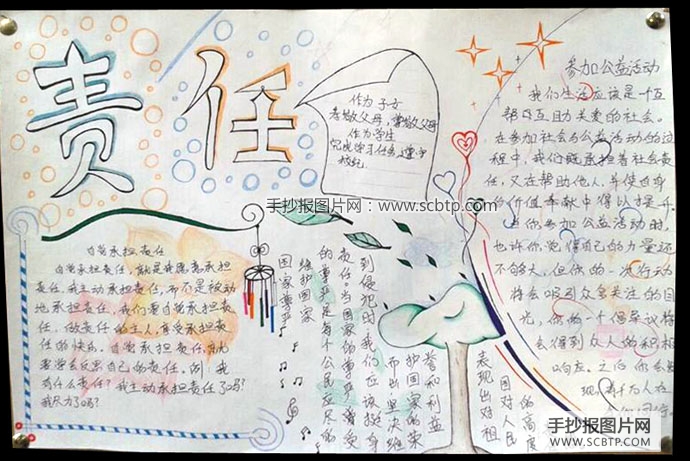 责任
作为子女
孝敬父母，尊敬父母
作为学生
完成学习任务，遵守
校纪
手抄报图片网：www.scbtp.com
自觉承担责任
自觉承担责任，就是我愿意承担
责任，我主动承担责任，而不是被动
地承担责任，我们要自觉承担责
任，做责任的主人，享受承担责任
的快乐。自觉承担责任，就
要学会反思自己的责任，例，我
有什么责任？我主动承担责任了吗？
我尽力了吗？
维护国家
国家尊严
到侵犯时，我们应该挺身
责任。当国家的尊严遭受
的尊严是每个公民应尽的
誉和利益
护国家的荣
而出，坚决维
的高度
国对人民
表现出对祖
参加公益活动
我们生活应该是一个互
帮互助关爱的社会。
在参加社会与公益活动的过
程中，我们既承担着社会责
任，又在帮助他人，并使自身
的价值奉献中得以提升。
当你参加公益活动时，
也许你觉得自己的力量还
不够大，但你的一次行动
将会吸引众多关注的目
光，你的一个倡议将
会得到众人的积极
响应。
手抄报图片网
WWW.SCBTP.COM